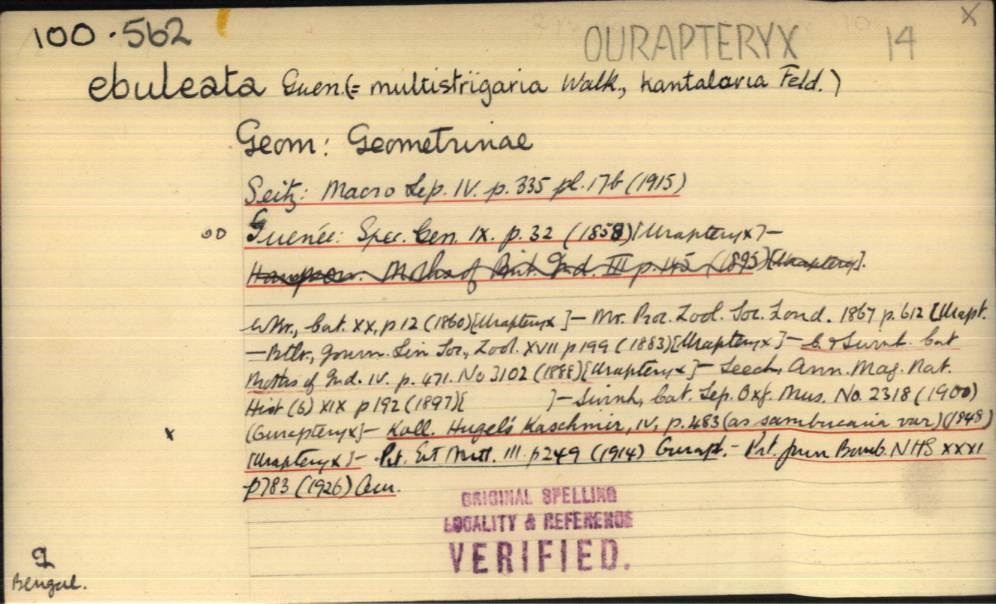 X
100.562 OURAPTERYX 14
ebuleata Guen.(= multistrigaria Walk., kantalaria Feld.)
Geom: Geometrinae
Seitz: Macro Lep. IV. p. 335 pl. 17b (1915)
Guenée: Spec. Gen. IX. p. 32 (1858) [Urapteryx] —
Hampson. Moths of Brit. Ind. III p. 145 (1895) [Urapteryx].
Wlkr., Cat. XX, p 12 (1860) [Urapteryx] — Mr. Proc. Zool. Soc. Lond. 1867 p. 612 [Urapt.
— Btlr, Journ. Lin Soc, Zool. XVII p 199 (1883) [Urapteryx] — C. & Swinh. Cat
Moths of Ind. IV. p. 471. No 3102 (1888) [Urapteryx] — Leech, Ann. Mag. Nat.
Hist (6) XIX p 192 (1897) [ ] — Swinh, Cat. Lep. Oxf. Mus. No. 2318 (1900)
x (Ourapteryx] — Koll. Hugel's Kaschmir, IV, p. 483 (as sambucaria var) (1848)
[Urapteryx] — Prt. Ent Mitt. III. p 249 (1914) Ourapt. — Prt. Journ Bomb. N HS XXXI
p 783 (1926) Our.
ORIGINAL SPELLING
LOCALITY & REFERENCE
VERIFIED.
Bengal.